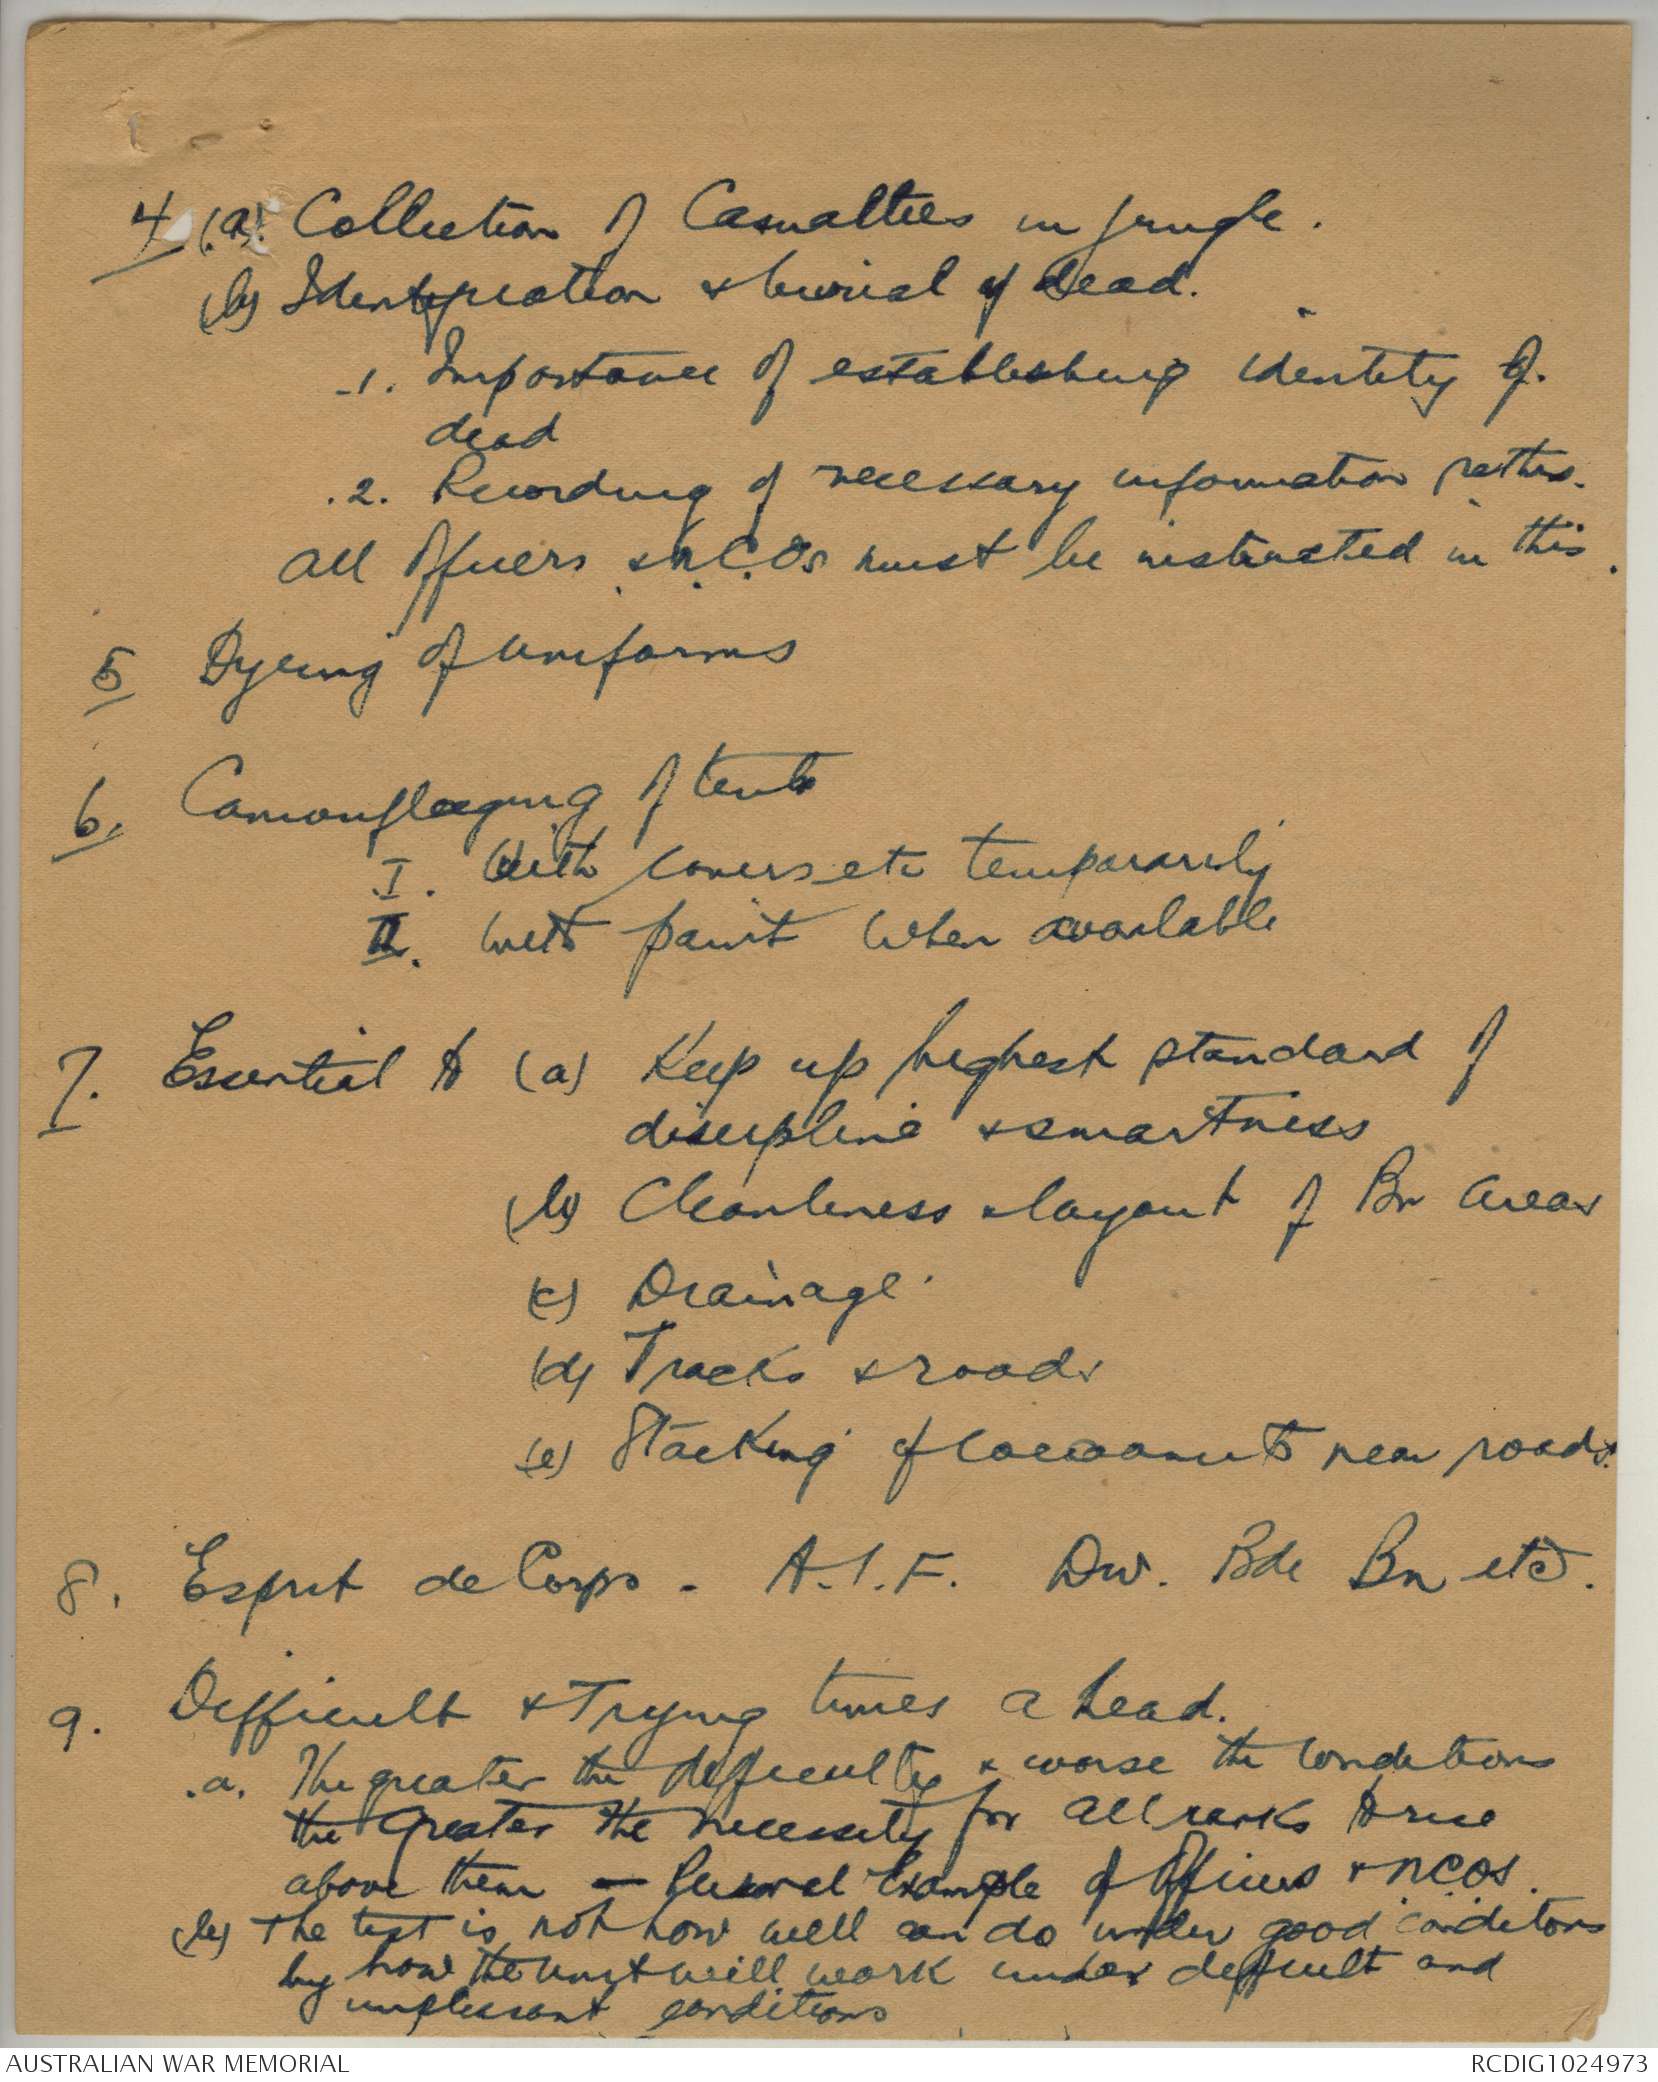 4 (a) Collection of Casualties in jungle.
(b) Identification & burial of dead.
.1. Importance of establishing identity of
dead
.2. Recording of necessary information
All Officers & N.C.Os must be instructed in this.
5 Dyeing of uniforms
6. Camouflaging of tents
I. With covers etc temporarily
II. With paint when available
7. Essential to (a) Keep up highest standard of
discipline & smartness
(b) Cleanliness & layout of Bn areas
(c) Drainage.
(d) Tracks & roads
(e) Stacking of cocoanuts near roads.
8. Esprit de Corps - A.I.F. Div. Bde Bn etc.
9. Difficult & Trying times ahead.
.a. The greater the difficulty & worse the conditions
the greater the necessity for all ranks to rise
above them - Personal Example of Officers & NCOs.
(b) The test is not how well can do under good conditions
by how the unit will work under difficult and
unpleasant conditions
AUSTRALIAN WAR MEMORIAL
RCDIG1024973